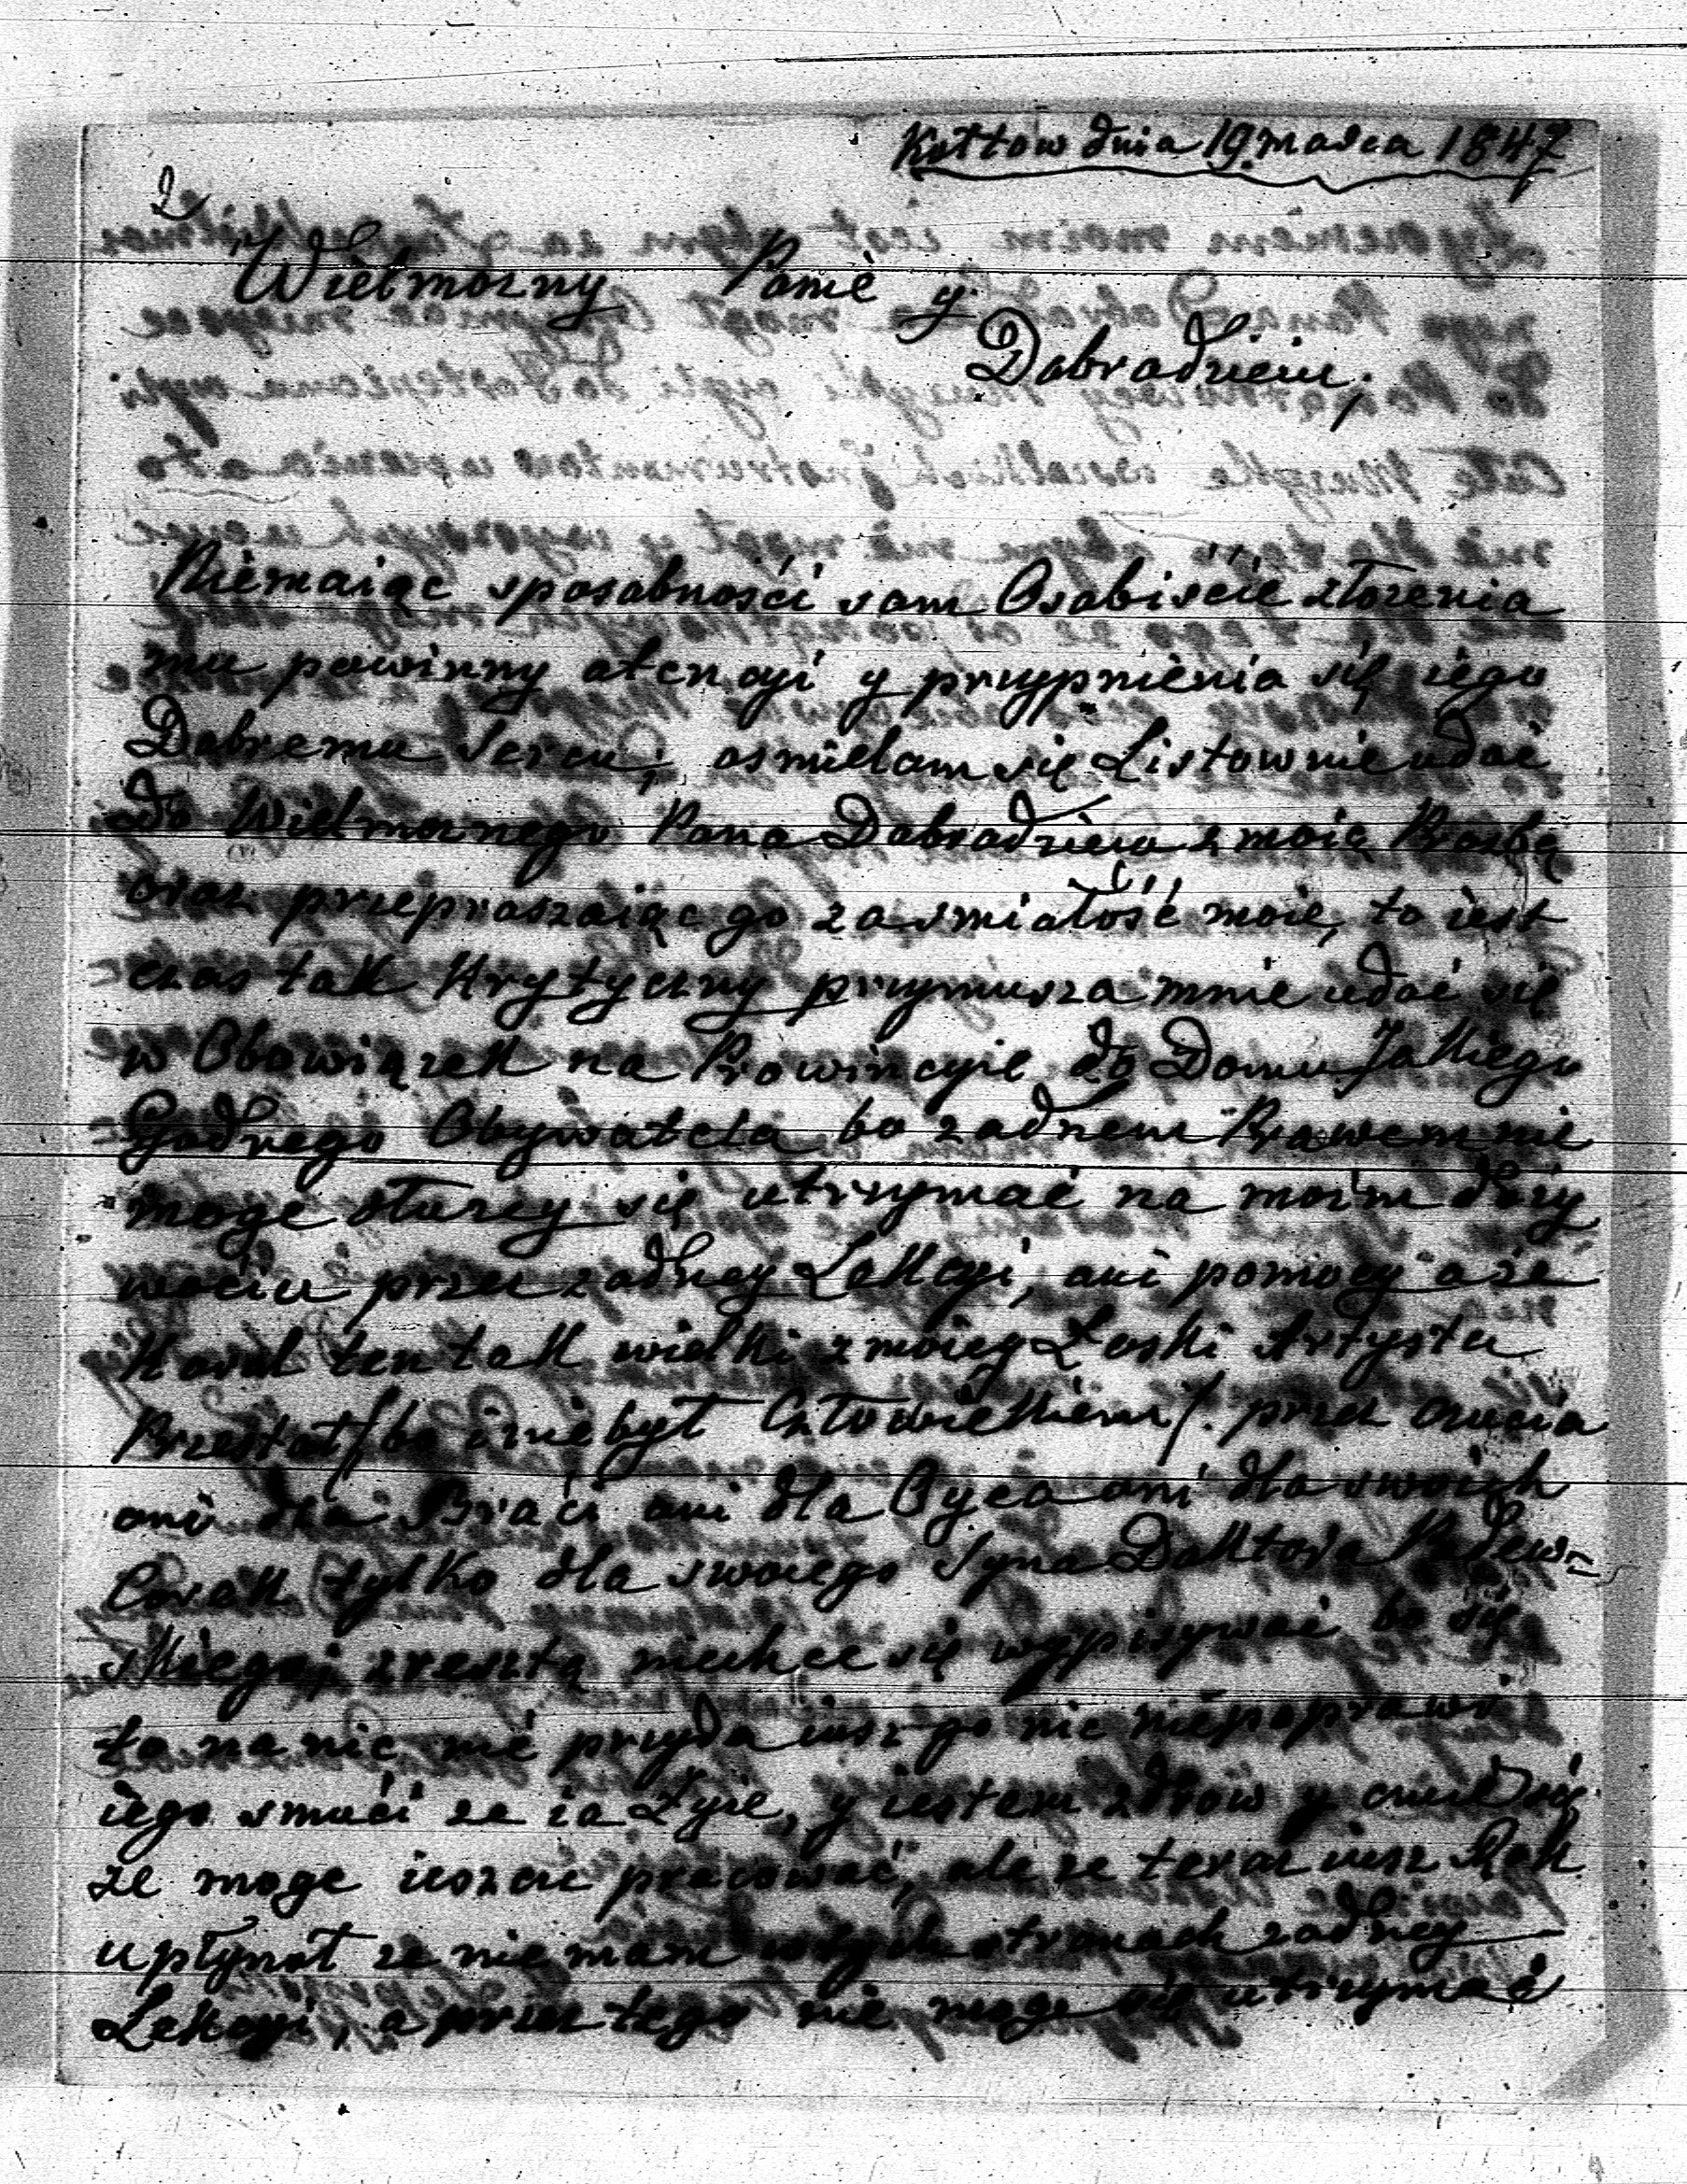 Kotłow dnia 19 marca 1847
2
Wielmozny Panie y
Dobrodzieiu,
Niemaiąc sposobnosći sam Osobiśćie złozenia
mu powinny atencyi y przypnienia się iego
Dobremu Sercu, osmielam się Listownie udać
do Wielmoznego Pana Dobrodzieia z moią Prozbą
oraz przepraszaiąc go za smiałość moie, to iest
czas tak Krytyczny przymusza mnie udać się
w Obowiązek na Prowincyie do Domu Jakiego
Godnego Obywatela bo zadnem Prawem nie
moge dłuzey się utrzymać na moim dozy
wociu przez zadney Lekcyi, ani pomocy aze
Karol ten tak wielki z moiey Łaski Artysta
Przestał /bo i niebył Człowiekiem/. przez czucia
ani dla Braci ani dla Oyca ani dla swoich
Corak tylko dla swoiego Syna Doktora
skiego; zresztą niechce się wypisywać bo się
to na nic nié przyda iusz go nic niepoprawi
iego smući ze ia Żyie, y iestem zdrów y czuie się
ze moge ieszcze pracować, ale ze teraz iusz Rok
upłynoł ze nie mam w tych stronach zadney
Lekcyi, a przez tego nie moge się utrzymać